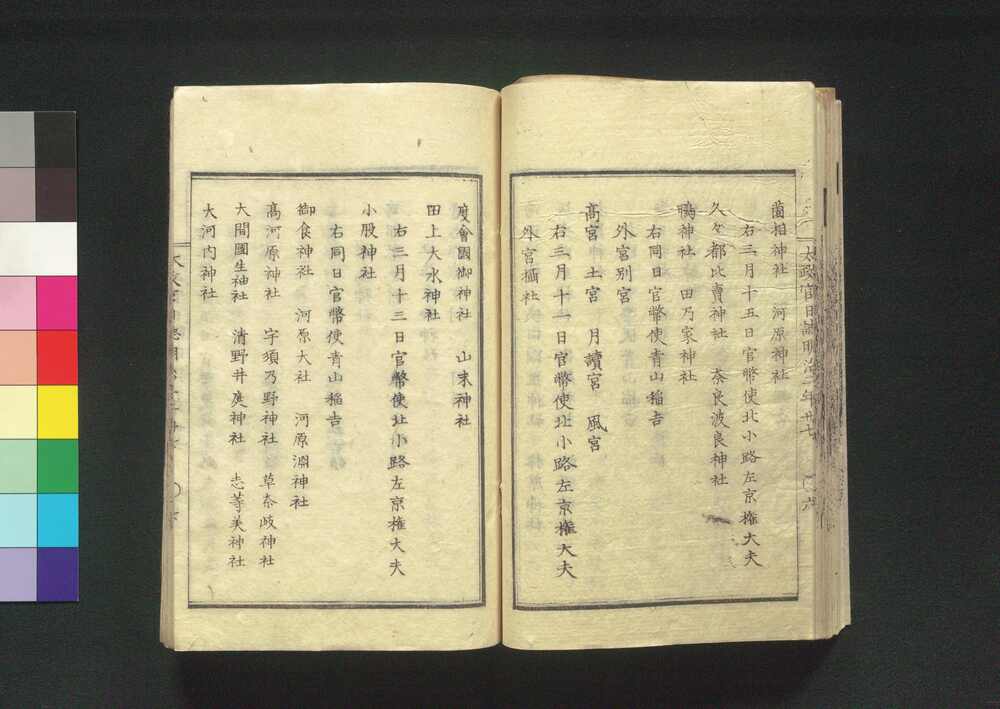 薗相神社　河原神社
右三月十五日官幣使北小路左京権大夫
久々都比賣神社　奈良波良神社
鴨神社　田乃家神社
右同日官幣使青山稲吉
外宮別宮
高宮　土宮　月讀宮　風宮
右三月十一日官幣使北小路左京権大夫
外宮攝社
度會國御神社　山末神社
田上大水神社
右三月十三日官幣使北小路左京権大夫
小股神社
右同日官幣使青山稲吉
御食神社　河原大社　河原淵神社
高河原神社　宇須乃野神社　草奈岐神社
大間國生神社　清野井庭神社　志等美神社
大河内神社